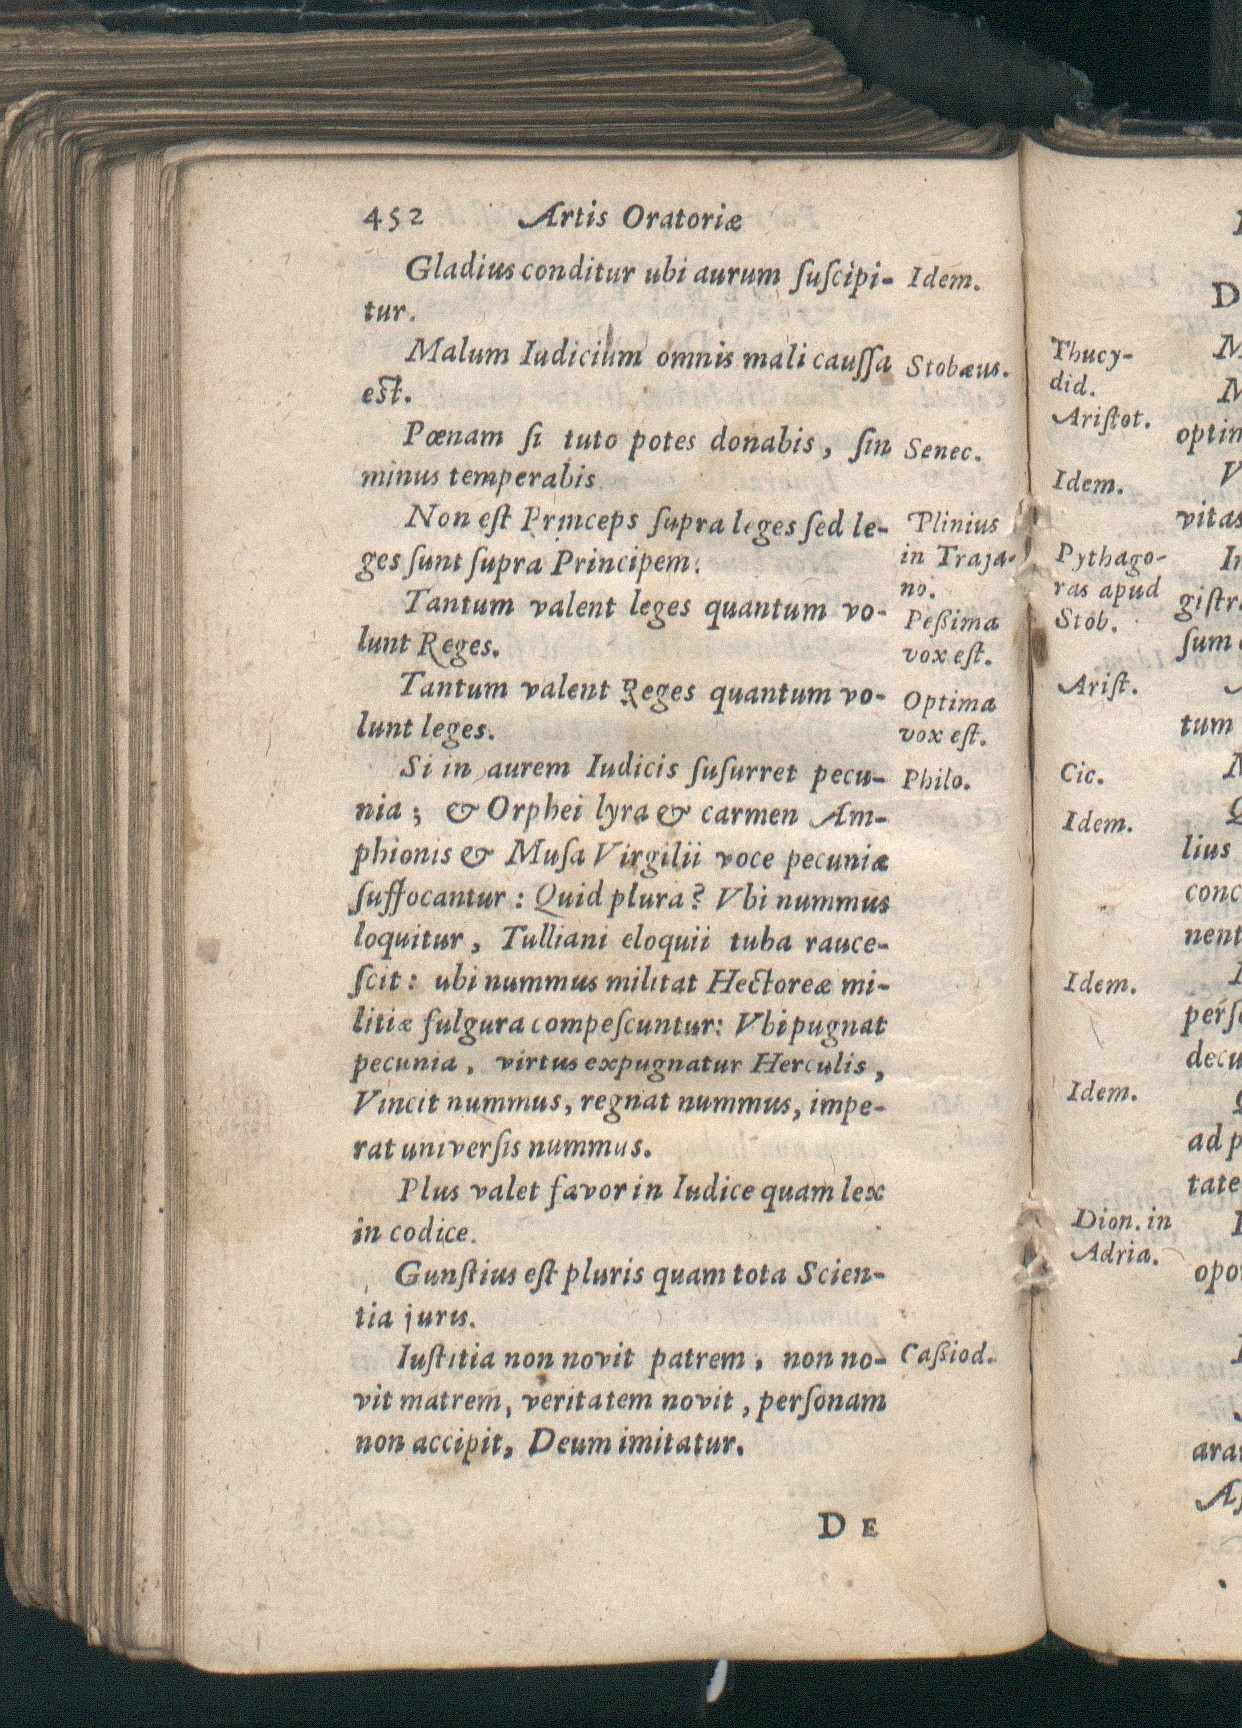 452 Artis Oratoriæ
Gladius conditur ubi aurum ſuſcipi- Idem.
tur.
Malum Iudicium omnis mali cauſſa Stobæus.
eſt.
Pœnam ſi tuto potes donabis, ſin Senec.
minus temperabis
Non eſt Princeps ſupra leges ſed le- Plinius
ges ſunt ſupra Principem. in Traja-
no.
Tantum valent leges quantum vo- Peßima
lunt Reges. vox eſt.
Tantum valent Reges quantum vo- Optima
lunt leges. vox eſt.
Si in aurem Iudicis ſuſurret pecu- Philo.
nia; & Orphei lyra & carmen Am-
phionis & Muſa Virgilii voce pecuniæ
ſuffocantur: Quid plura? Vbi nummus
loquitur, Tulliani eloquii tuba rauce-
ſcit: ubi nummus militat Hectoreæ mi-
litiæ fulgura compeſcuntur: Vbi pugnat
pecunia, virtus expugnatur Herculis,
Vincit nummus, regnat nummus, impe-
rat univerſis nummus.
Plus valet favor in Iudice quam lex
in codice.
Gunſtius eſt pluris quam tota Scien-
tia juris.
Iuſtitia non novit patrem, non no- Caßiod.
vit matrem, veritatem novit, perſonam
non accipit, Deum imitatur.
DE
D
Thucy-
did.
Ariſtot.
optim
Idem.
vitas
Pythago-
ras apud
Stob.
giſtra
ſum
Ariſt.
tum
Cic.
Idem.
lius
conc
nent
Idem.
perſo
decu
Idem.
ad p
tate
Dion. in
Adria.
opor
arar